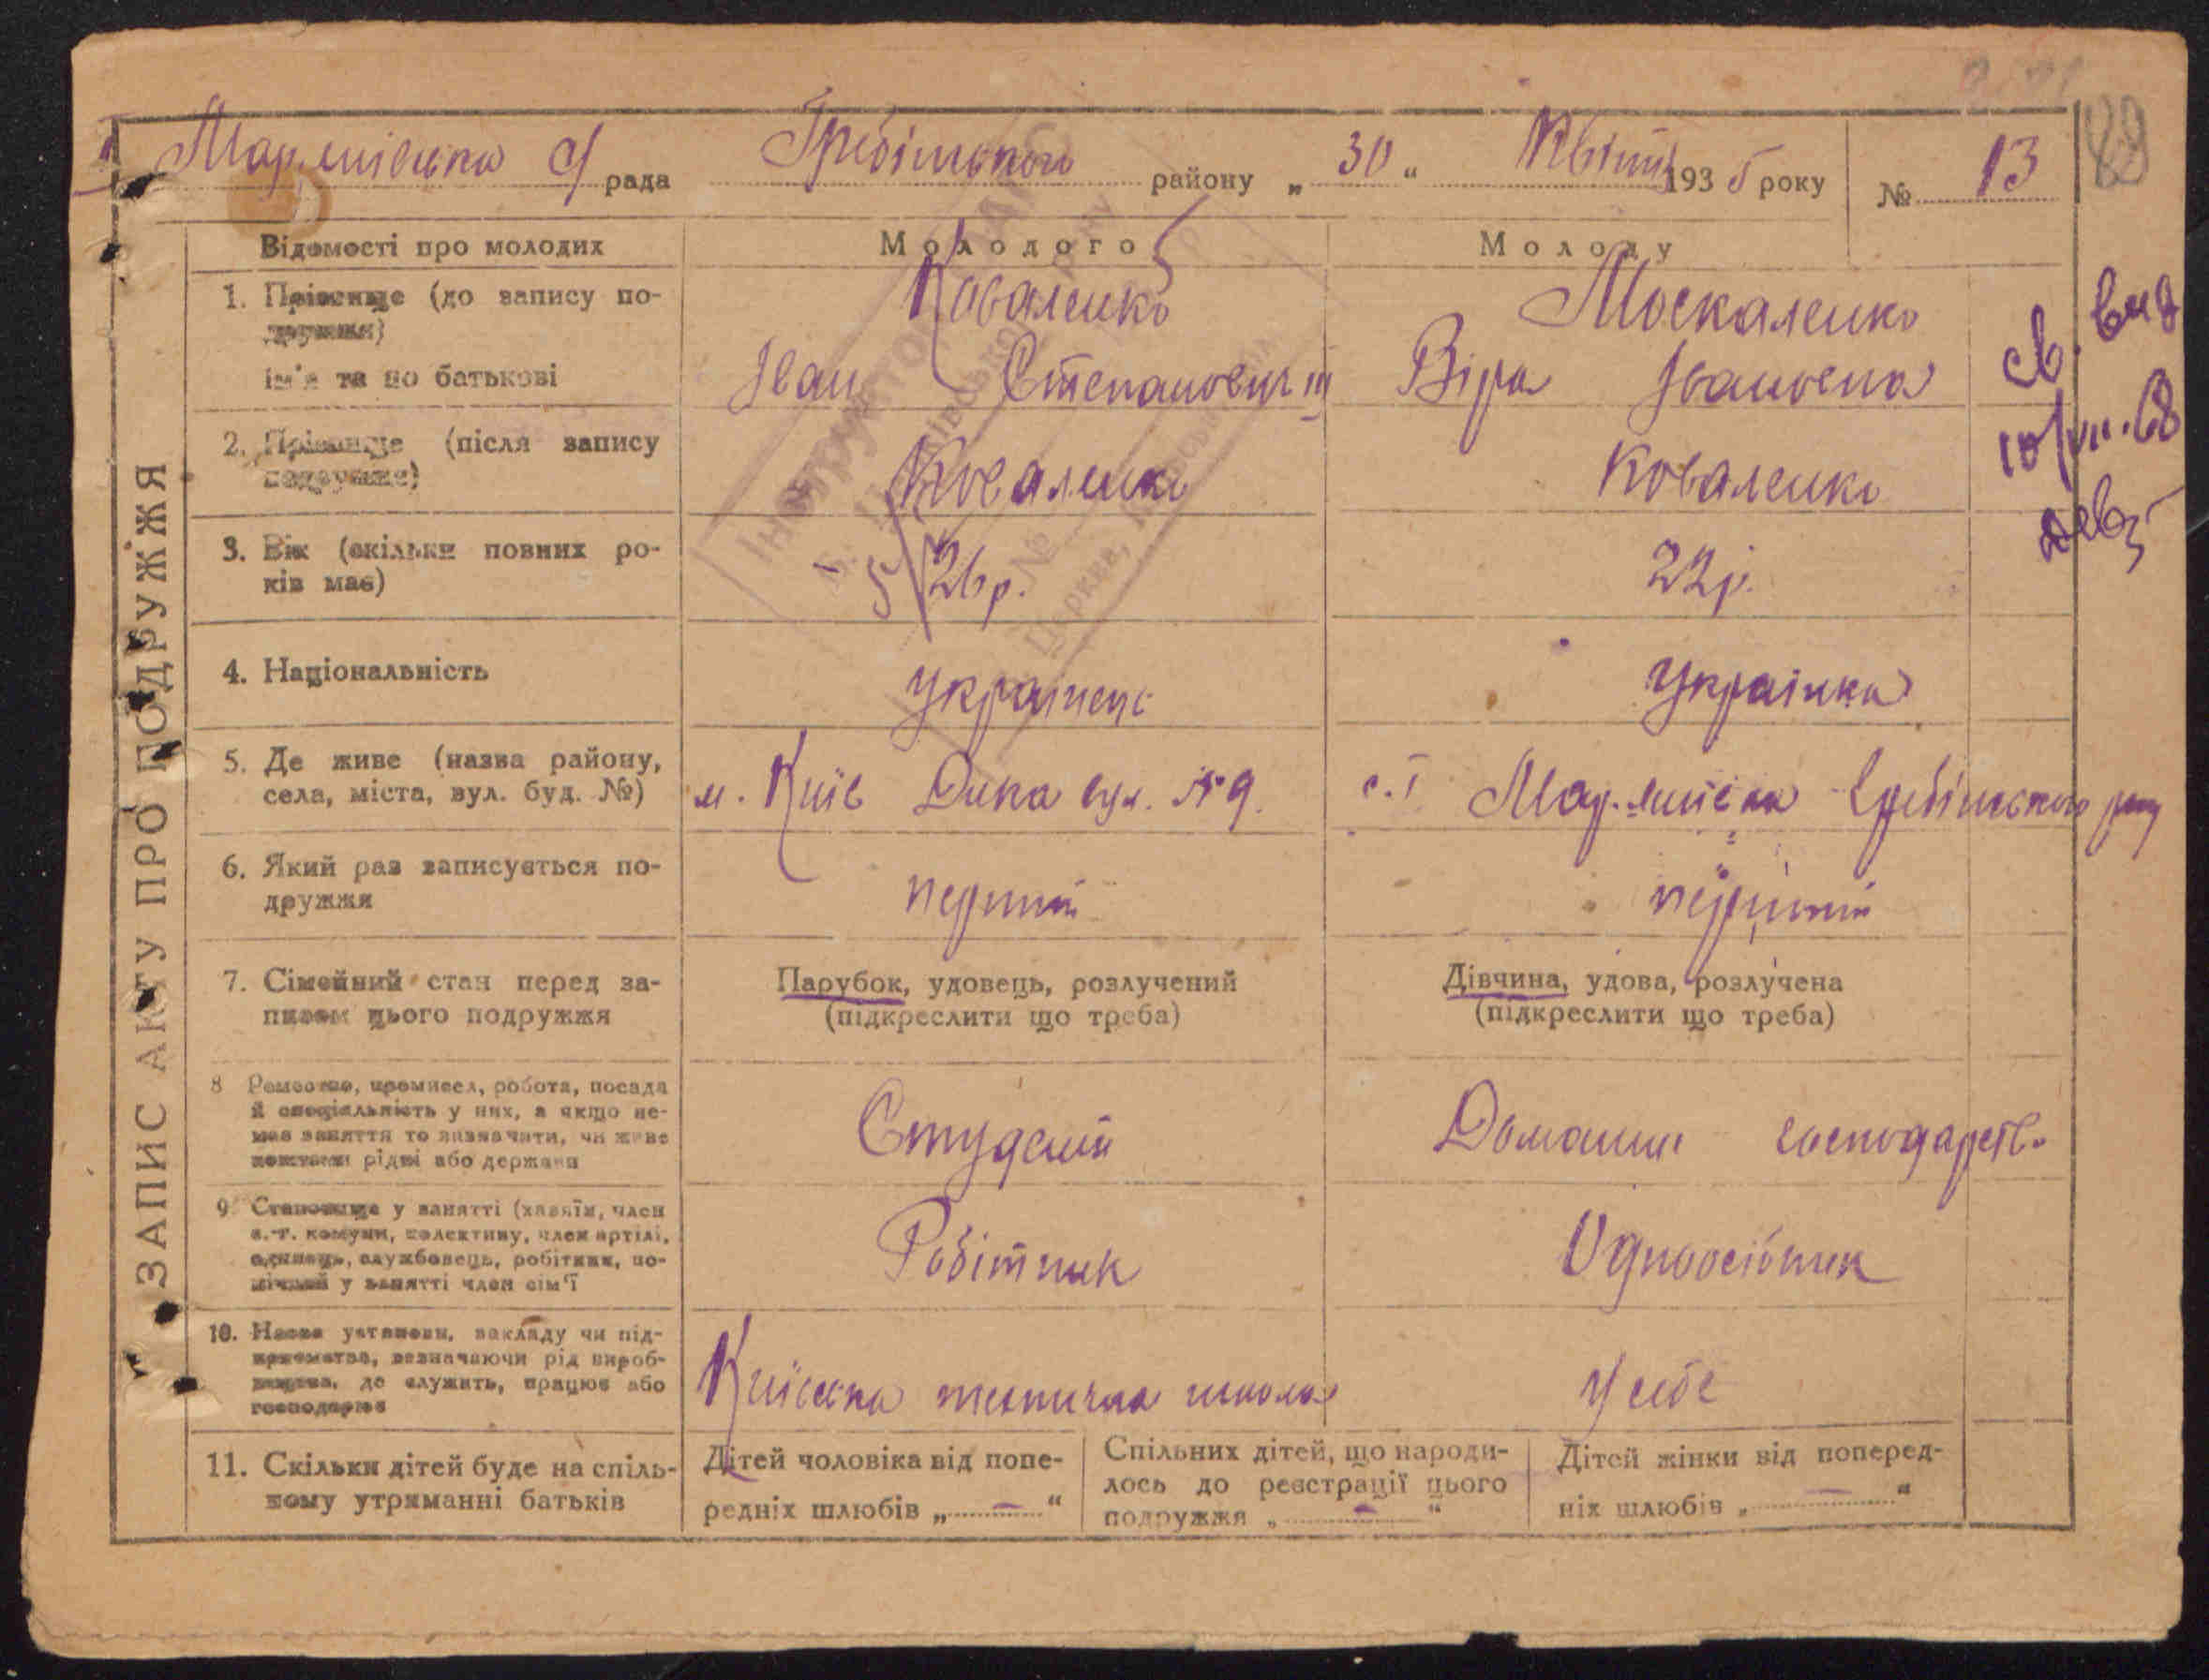 с/рада Гребінського району „30“ Квітня 1935 року № 13
89
ЗАПИС АКТУ ПРО ПОДРУЖЖЯ
Відомості про молодих
Молодого
Молоду
1. Прізвище (до запису по-
дружжя)
Коваленко
Москаленко
Ім'я та по батькові
Іван Степанович
Віра Івановна
2. Прізвище (після запису
подружжя)
Коваленко
Коваленко
3. Вік (скільки повних ро-
ків має)
26 р.
22 р.
4. Національність
Українець
Українка
5. Де живе (назва району,
села, міста, вул. буд. №)
м. Київ Дика вул. № 9.
Гребінського
6. Який раз записується по-
дружжя
перший
перший
7. Сімейний стан перед за-
писом цього подружжя
Парубок, удовець, розлучений
(підкреслити що треба)
Дівчина, удова, розлучена
(підкреслити що треба)
8 Ремество, промисел, робота, посада
й спеціяльність у них, а якщо не-
має заняття то визначити, чи живе
коштами рідні або держави
Студент
Домашнє господарство
9 Становище у занятті (хазяїн, член
с.-г. комуни, колективу, член артілі,
одинець, службовець, робітник, по-
мічний у занятті член сім'ї
Робітник
Одноосібник
10. Назва установи, закладу чи під-
приємства, визначаючи рід вироб-
ництва, де служить, працює або
господарює
Київська технична школа
У себе
11. Скільки дітей буде на спіль-
ному утриманні батьків
Дітей чоловіка від попе-
редніх шлюбів „ — “
Спільних дітей, що народи-
лось до реєстрації цього
подружжя „ — “
Дітей жінки від поперед-
ніх шлюбів „ — “
св. выд
10/VII.68